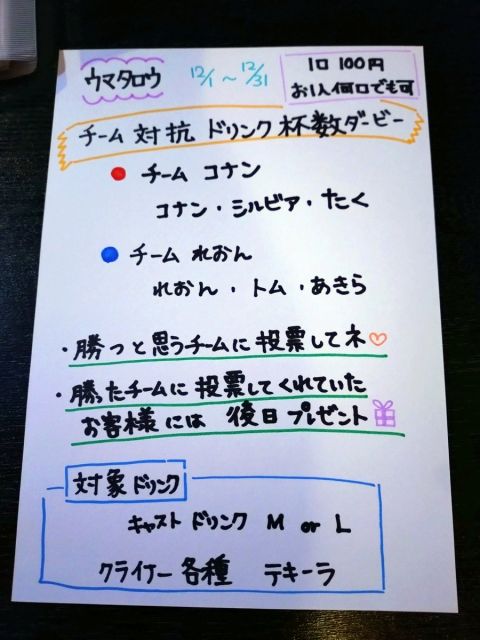 ウマタロウ 12/1 ~ 12/31
1口 100円
お1人何口でも可
チーム 対抗 ドリンク 杯数ダービー
チーム コナン
コナン・シルビア・たく
チーム れおん
れおん・トム・あきら
・勝つと思うチームに投票してネ♡
・勝ったチームに投票してくれていた
お客様には 後日 プレゼント
対象ドリンク
キャスト ドリンク M or L
クライナー 各種 テキーラ